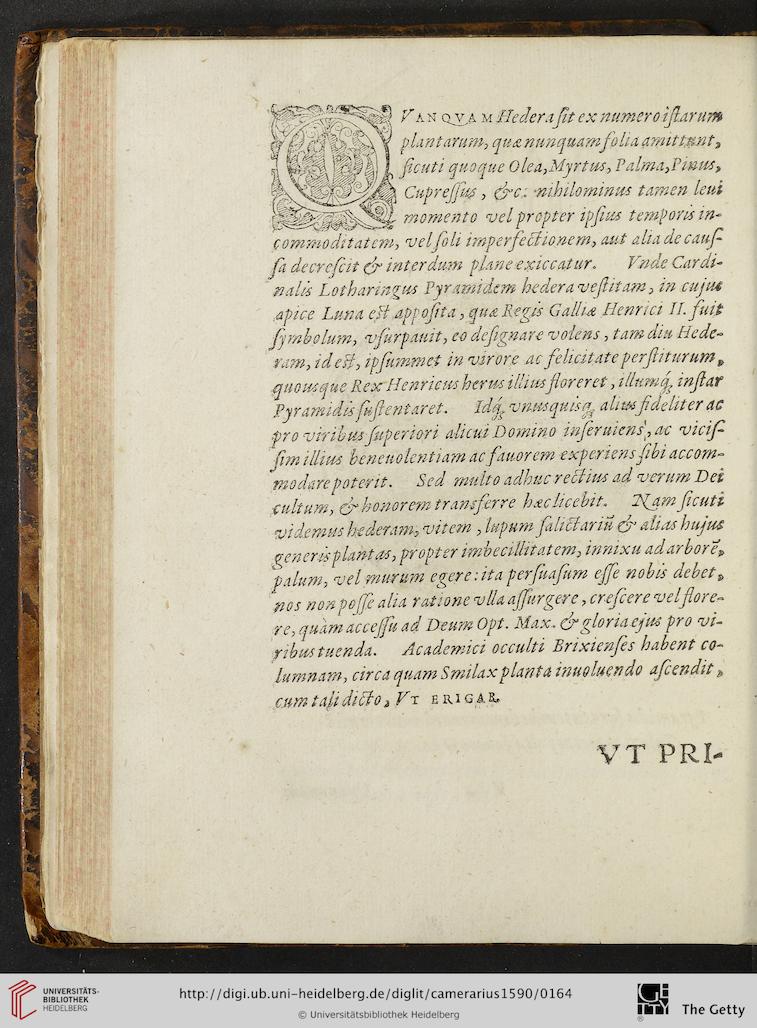 QVANQVAM Hedera ſit ex numero iſtarum
plantarum, quæ nunquam folia amittunt,
ſicuti quoque Olea, Myrtus, Palma, Pinus,
Cupreſſus, &c: nihilominus tamen leui
momento vel propter ipſius temporis in-
commoditatem, vel ſoli imperfectionem, aut alia de cauſ-
ſa decreſcit & interdum plane exiccatur. Vnde Cardi-
nalis Lotharingus Pyramidem hedera veſtitam, in cujus
apice Luna eſt appoſita, quæ Regis Galliæ Henrici II. fuit
ſymbolum, vſurpauit, eo deſignare volens, tam diu Hede-
ram, id eſt, ipſummet in virore ac felicitate perſtiturum,
quousque Rex Henricus herus illius floreret, illumq́; inſtar
Pyramidis ſuſtentaret. Idq́; vnusquisq; alius fideliter ac
pro viribus ſuperiori alicui Domino inſeruiens, ac viciſ-
ſim illius beneuolentiam ac fauorem experiens ſibi accom-
modare poterit. Sed multo adhuc rectius ad verum Dei
cultum, & honorem transferre hæc licebit. Nam ſicuti
videmus hederam, vitem, lupum ſalictariū & alias hujus
generis plantas, propter imbecillitatem, innixu ad arborē,
palum, vel murum egere: ita perſuaſum eſſe nobis debet,
nos non poſſe alia ratione vlla aſſurgere, creſcere vel flore-
re, quàm acceſſu ad Deum Opt. Max. & gloria ejus pro vi-
ribus tuenda. Academici occulti Brixienſes habent co-
lumnam, circa quam Smilax planta inuoluendo aſcendit,
cum tali dicto, VT ERIGAR.
VT PRI-
UNIVERSITÄTS-
BIBLIOTHEK
HEIDELBERG
http://digi.ub.uni-heidelberg.de/diglit/camerarius1590/0164
© Universitätsbibliothek Heidelberg
The Getty